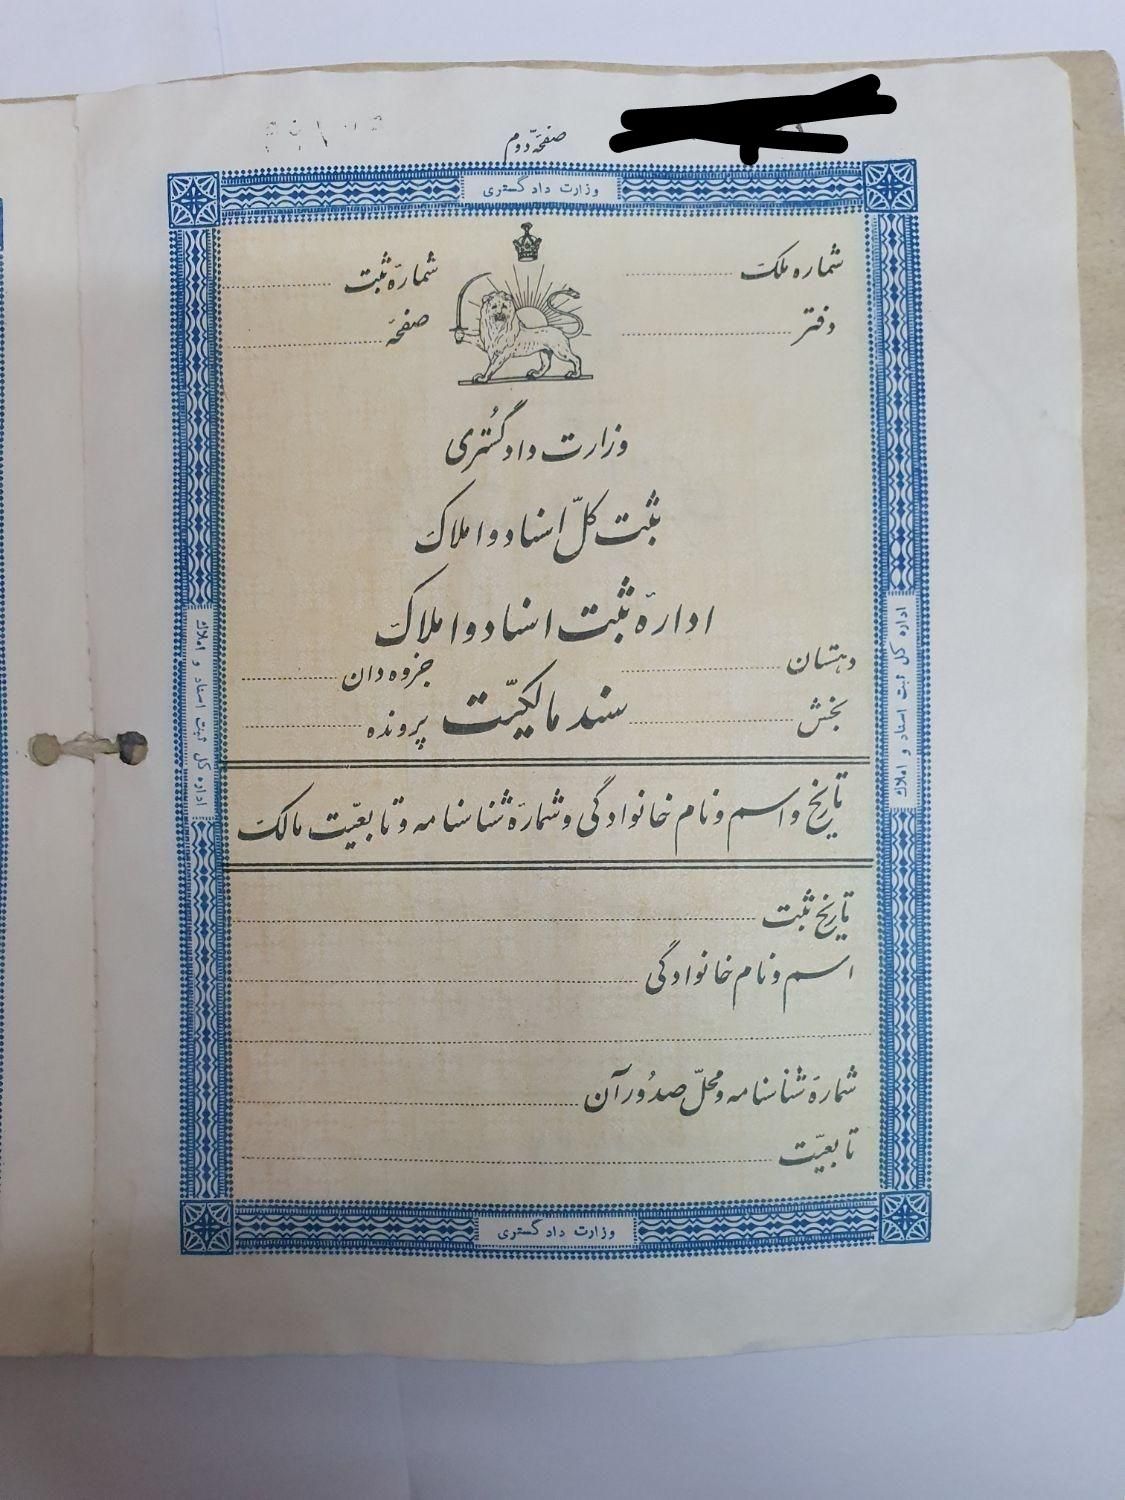 صفحهٔ دوم
وزارت دادگستری
شماره ملک
شماره ثبت
دفتر
صفحه
وزارت دادگستری
ثبت کلّ اسناد و املاک
اداره ثبت اسناد و املاک
دهستان
جزوه دان
بخش
سند مالکیّت
پرونده
تاریخ و اسم و نام خانوادگی و شماره شناسنامه و تابعیّت مالک
تاریخ ثبت
اسم و نام خانوادگی
شماره شناسنامه و محلّ صدور آن
تابعیّت
وزارت دادگستری
اداره کل ثبت اسناد و املاک
اداره کل ثبت اسناد و املاک